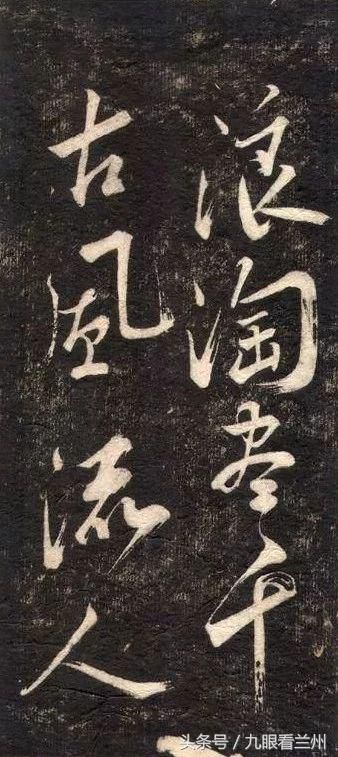 浪淘尽千
古風流人
头条号/九眼看兰州